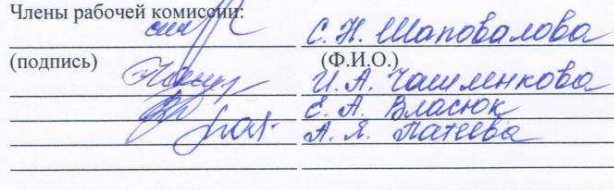 Члены рабочей комиссии:
С. Н. Шаповалова
(подпись) (Ф.И.О.)
И. А.
Е. А. Власюк
А. Я. Патеева